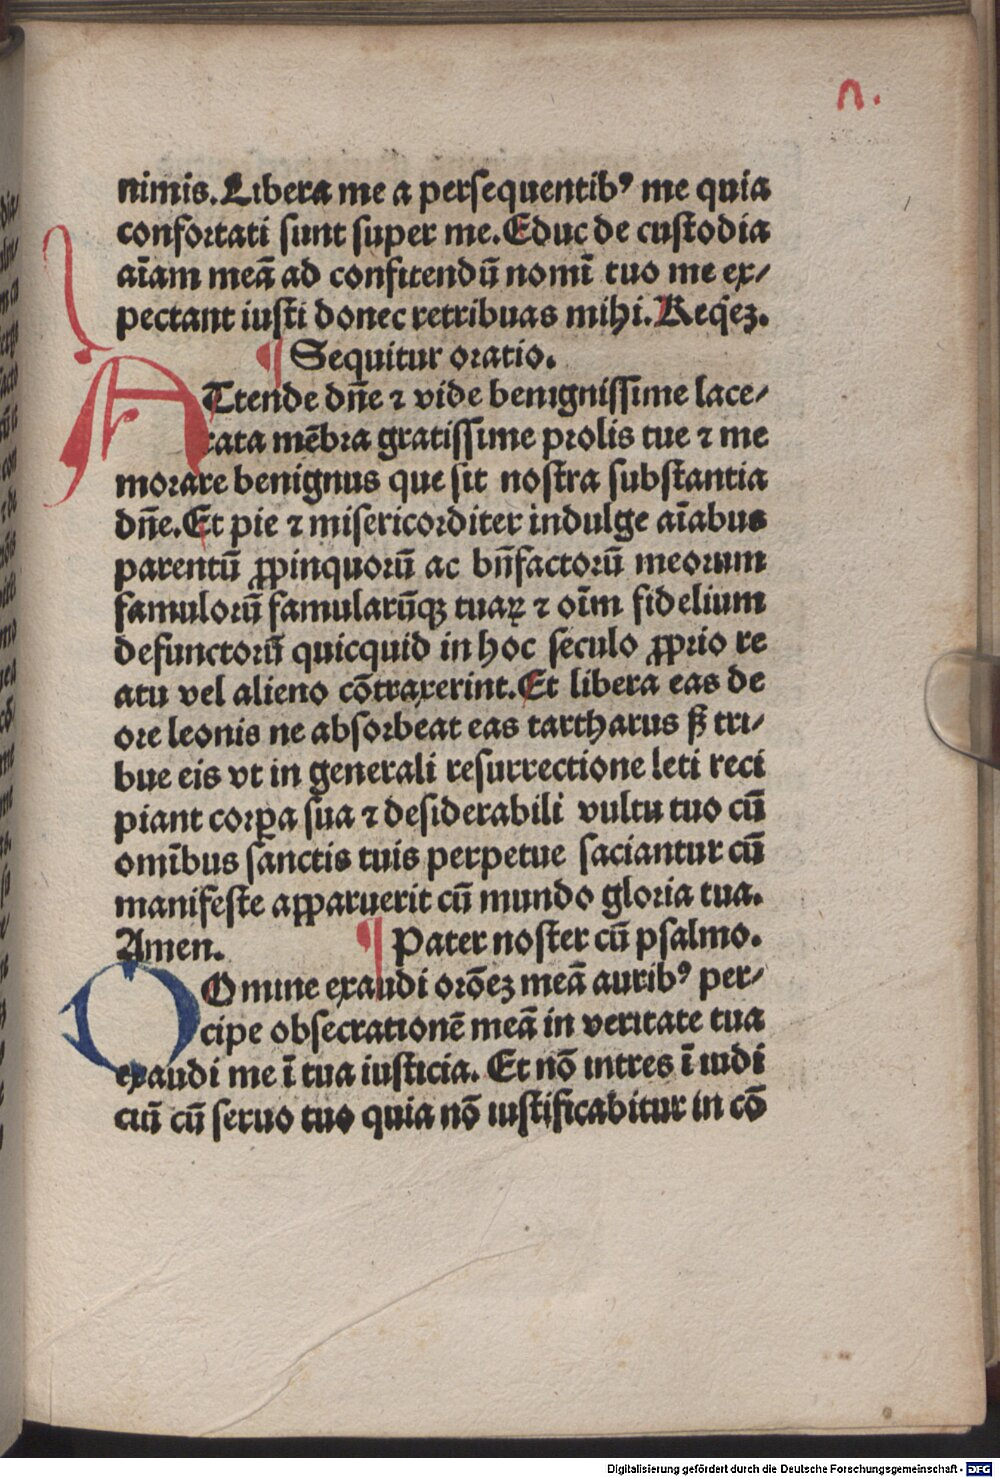 n.
nimis. Libera me a persequentibꝰ me quia
confortati sunt super me. Educ de custodia
aīam meā ad confitendū nomī tuo me ex/
pectant iusti donec retribuas mihi. Req̇ez.
¶ Sequitur oratio.
ATtende dn̄e ⁊ vide benignissime lace/
rata mēbra gratissime prolis tue ⁊ me
morare benignus que sit nostra substantia
dn̄e. Et pie ⁊ misericorditer indulge aīabus
parentū ꝓpinquorū ac bn̄factorū meorum
famulorū famularūqꝫ tuaꝝ ⁊ oīm fidelium
defunctorū quicquid in hoc seculo ꝓprio re
atu vel alieno cōtraxerint. Et libera eas de
ore leonis ne absorbeat eas tartharus ß tri/
bue eis vt in generali resurrectione leti reci
piant corꝑa sua ⁊ desiderabili vultu tuo cū
omībus sanctis tuis perpetue saciantur cū
manifeste apparuerit cū mundo gloria tua.
Amen. ¶ Pater noster cū psalmo.
DOmine exaudi orōez meā auribꝰ per/
cipe obsecrationē meā in veritate tua
exaudi me ī tua iusticia. Et nō intres ī iudi
ciū cū seruo tuo quia nō iustificabitur in cō
Digitalisierung gefördert durch die Deutsche Forschungsgemeinschaft - DFG